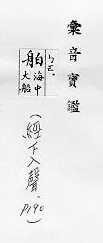 彙音寶鑑
ㄅㄛˊ
舶 海中大船
(經下入聲 P190)